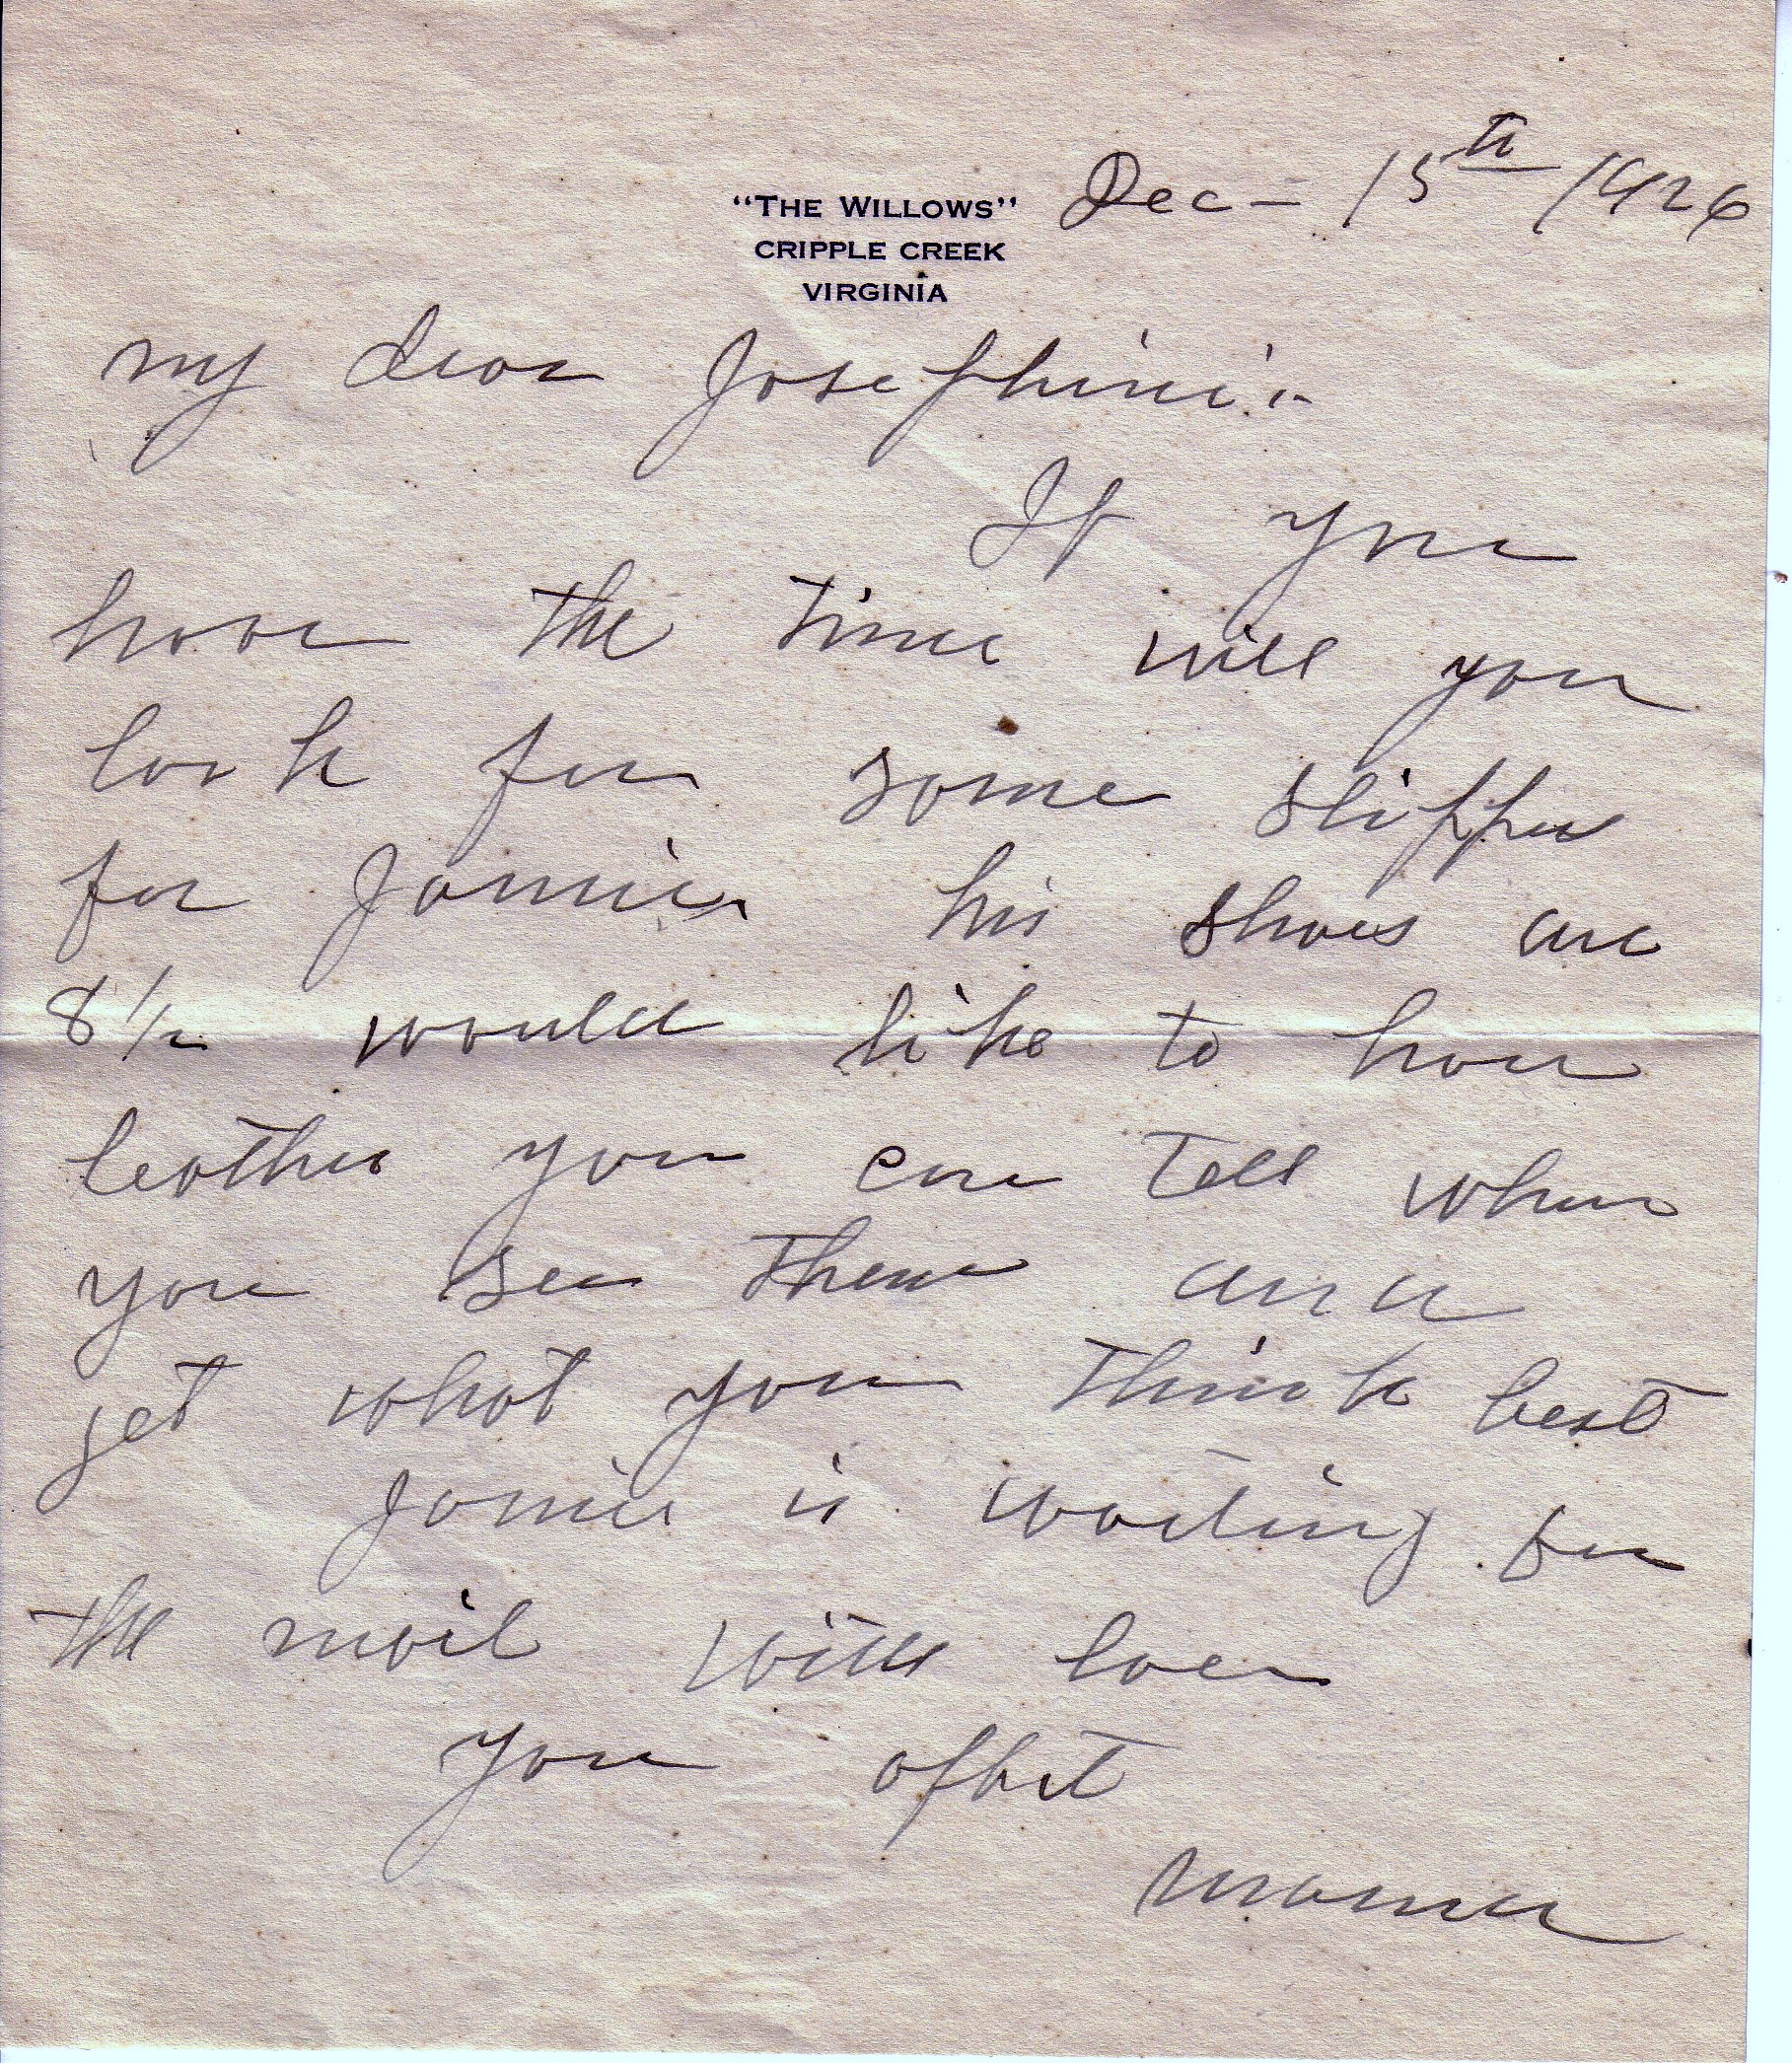 "THE WILLOWS"
CRIPPLE CREEK
VIRGINIA
Dec - 15th 1926
my dear Josephine:-
If you
have the time will you
look for some slippers
for Jamie, his shoes are
8 1/2 would like to have
leather you can tell when
you see them and
get what you think best
Jamie is waiting for
the mail with love
your affect
mama